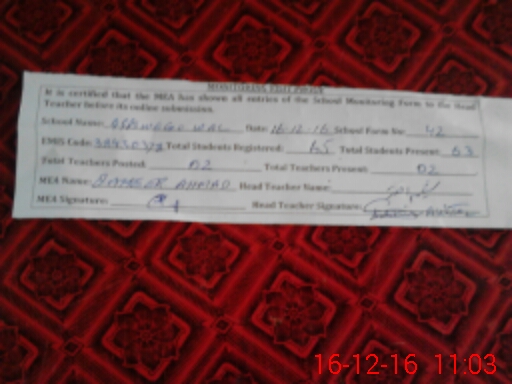 MONITORING VISIT PROFORMA
It is certified that the MEA has shown all entries of the School Monitoring Form to the Head
Teacher before its online submission.
School Name: Date: 16-12-16 School Form No: 42
EMIS Code: Total Students Registered: 65 Total Students Present: 63
Total Teachers Posted: 02 Total Teachers Present: 02
MEA Name: AHMAD Head Teacher Name:
MEA Signature: Head Teacher Signature:
16-12-16 11:03